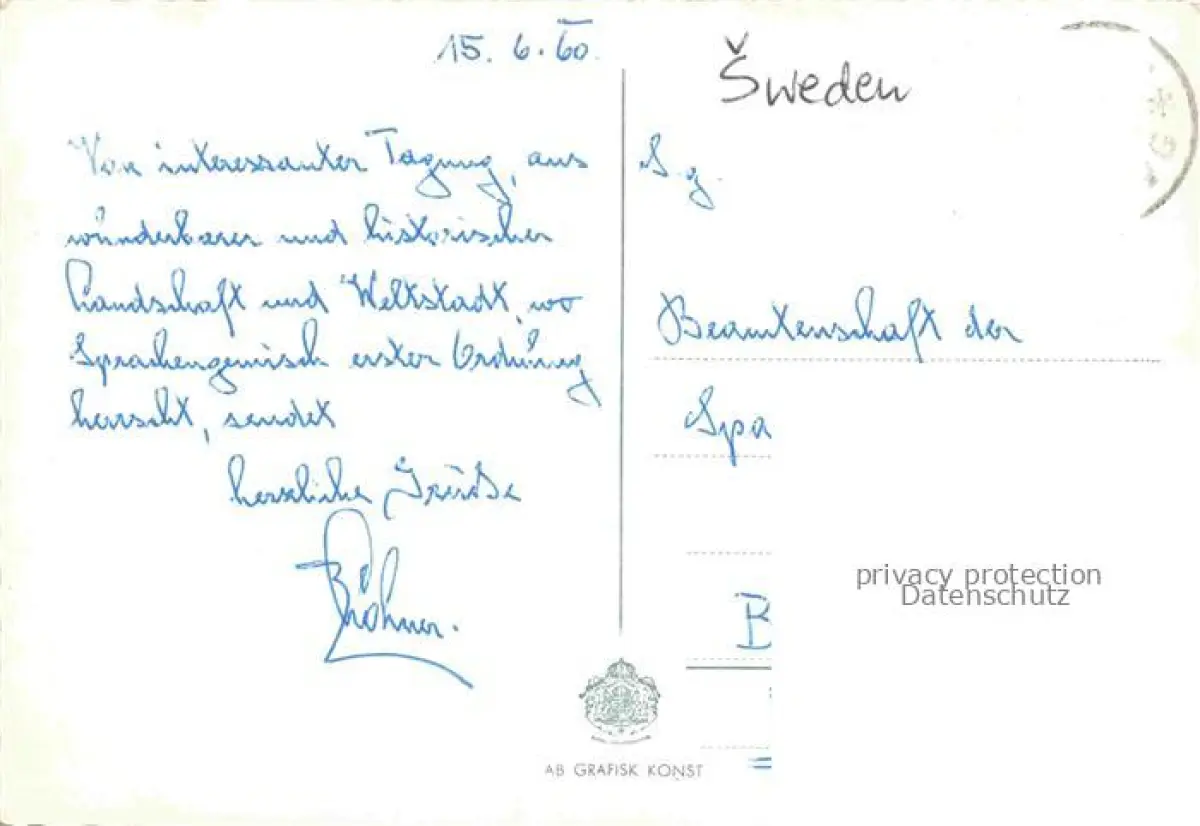 15. 6. 60.
Von interessanter Tagung, aus
wunderbarer und historischer
Landschaft und Weltstadt, wo
Sprachengemisch erster Ordnung
herrscht, sendet
herzliche Grüße
Sweden
S. g.
Beamtenschaft der
Spa
B
privacy protection
Datenschutz
AB GRAFISK KONST